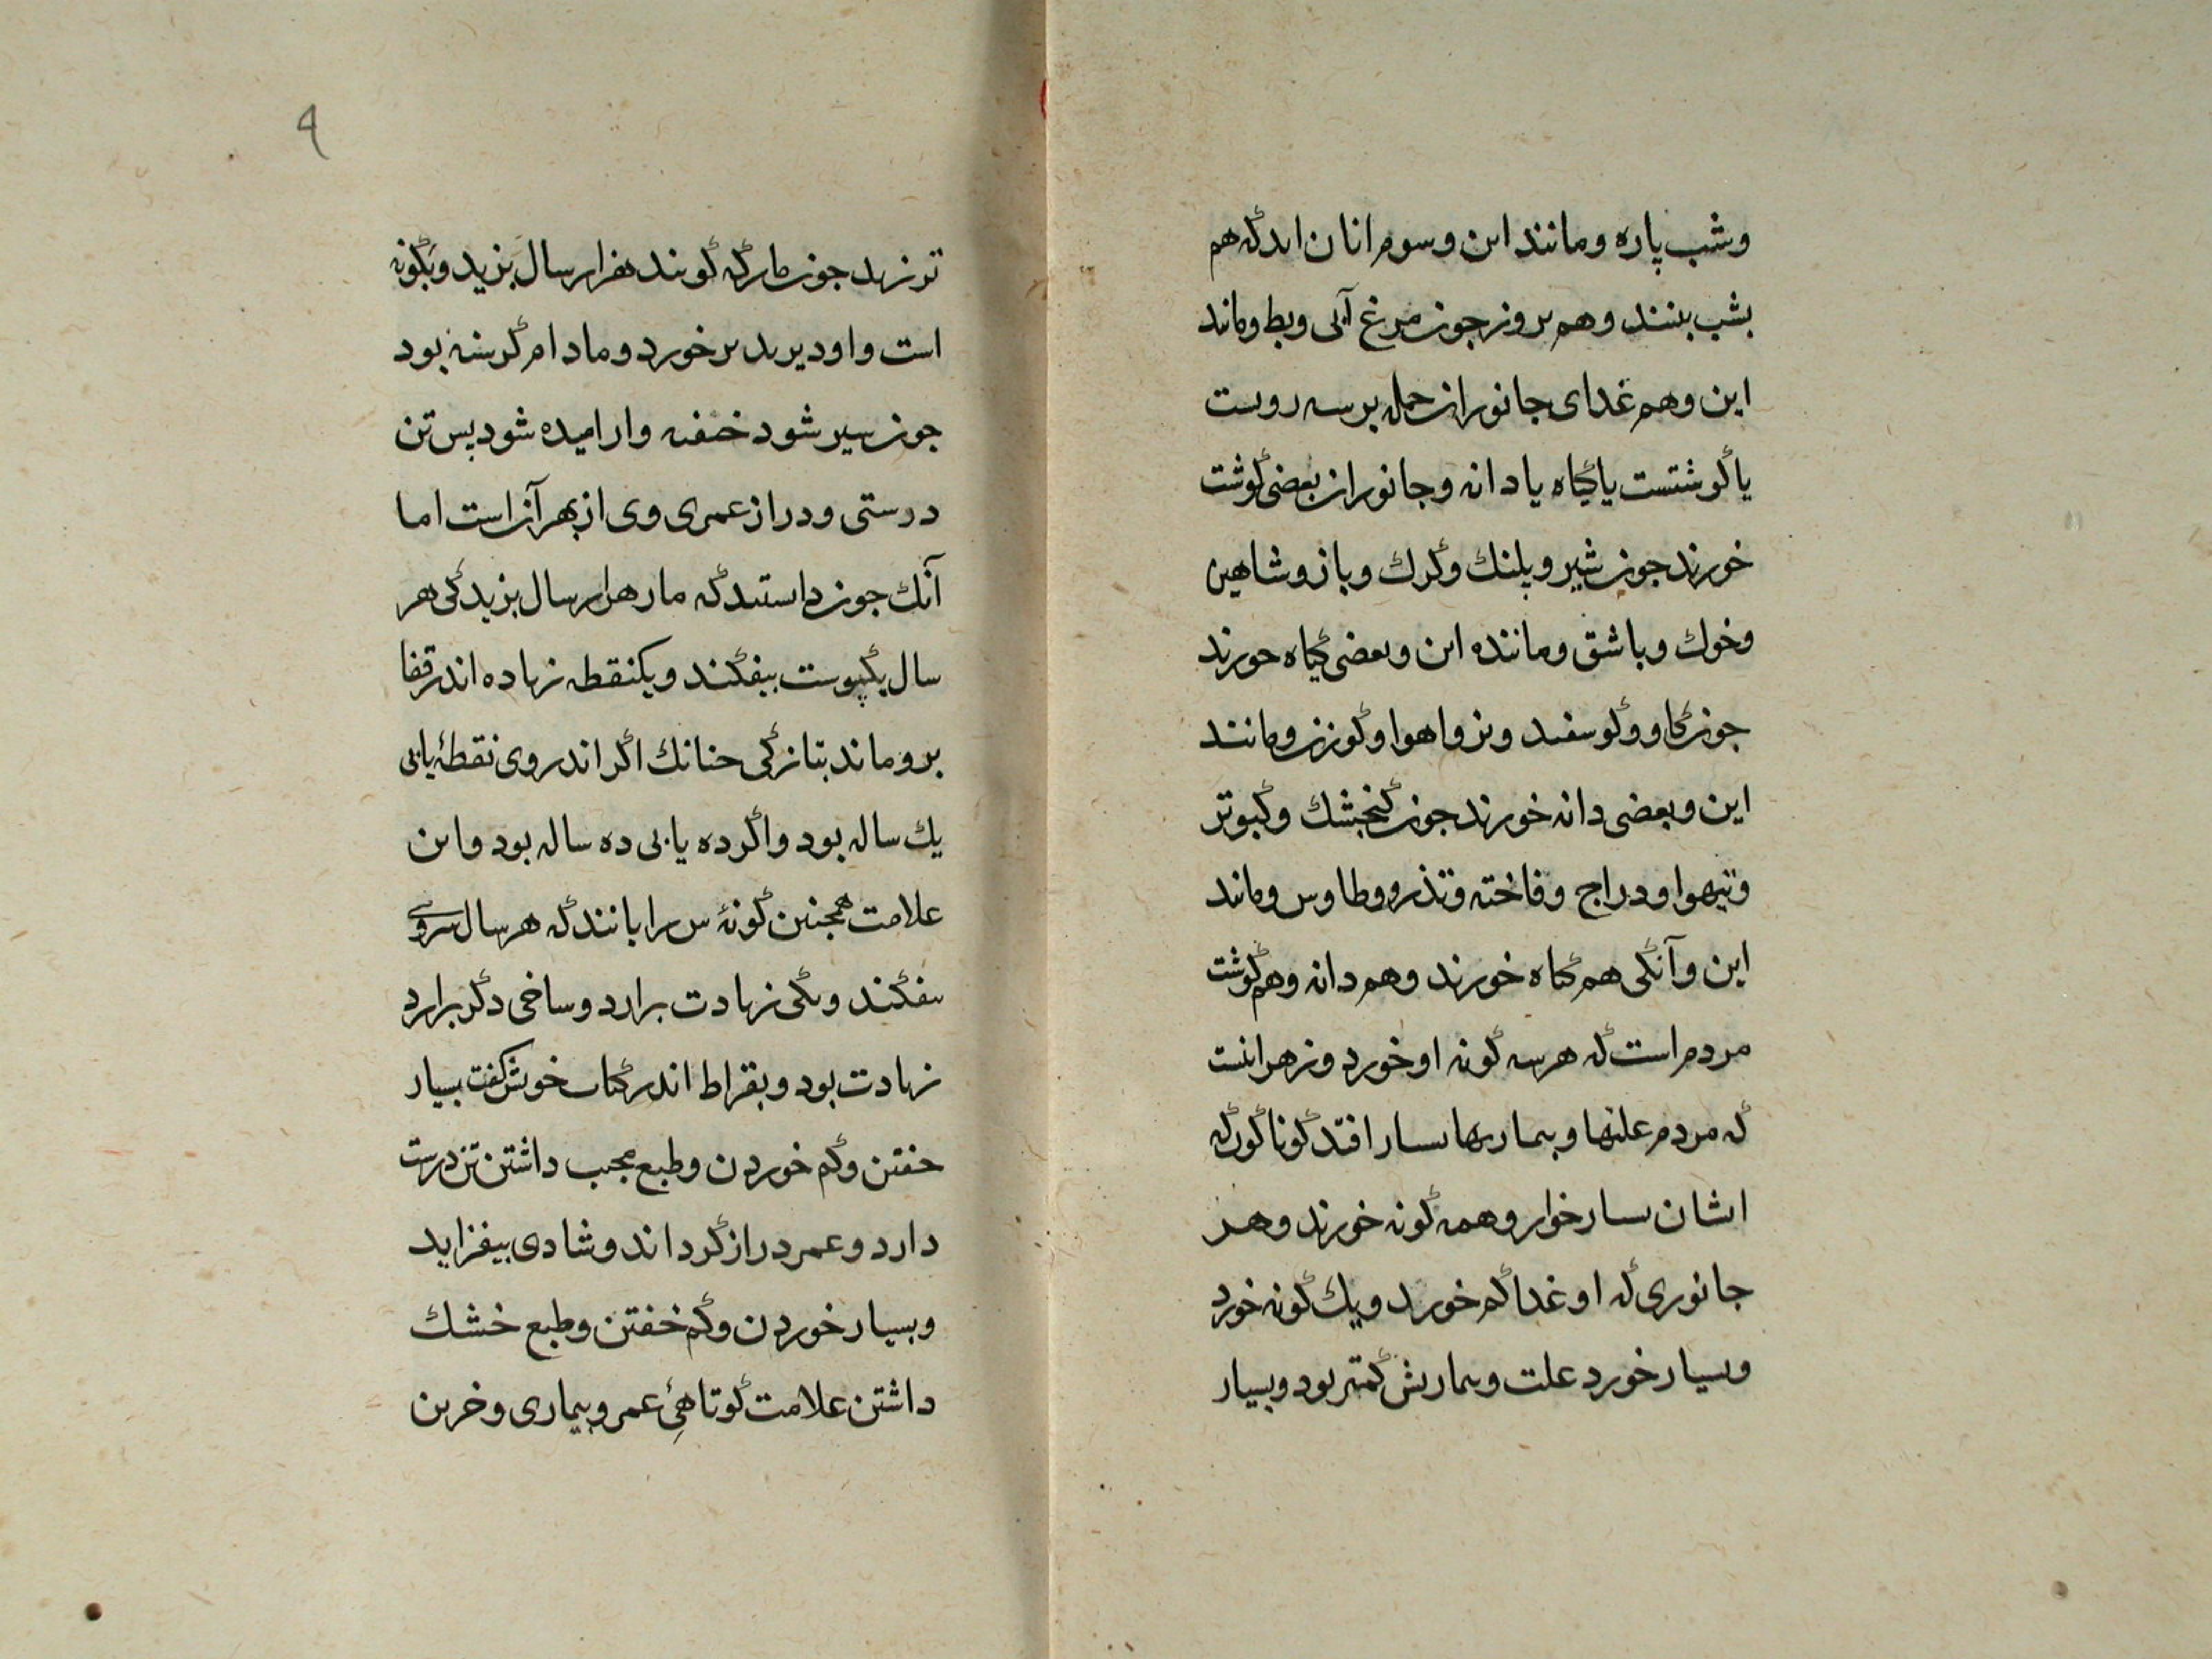 وشب پاره ومانند این وسوم انان اند که هم
بشب بینند وهم بروز جون مرغ آبی وبط ومانند
این وهم غدای جانوران جمله برسه رویست
یا گوشتست یا گیاه یا دانه وجانوران بعضی گوشت
خورند جون شیر وپلنک وگرك وباز وشاهین
وخوك وباشق وماننده این وبعضی گیاه خورند
جون گاو وگوسفند وبز واهوا وگوزن ومانند
این وبعضی دانه خورند جون گنجشك وکبوتر
وتیهوا ودراج وفاخته وتذرو وطاوس ومانند
این وآنکی هم گیاه خورند وهم دانه وهم گوشت
مردم است که هرسه گونه او خورد وزهر اینست
که مردم علتها وبیماریها بسیار افتد گوناگون که
ایشان بسیار خوار وهمه گونه خورند وهر
جانوری که او غدا کم خورد ویك گونه خورد
وبسیار خورد علت وبیماریش کمتر بود وبسیار
۹
تر زید جون مار که گویند هزار سال بزید ویکگونه
است واو دیر دیر خورد ومادام گرسنه بود
جون سیر شود خفته وارامیده شود پس تن
درستی ودراز عمری وی از بهر آن است اما
آنك جون دانستند که مار هزار سال بزید کی هر
سال یکپوست بیفکند ویکنقطه زیاده اندر قفا
برو ماند بتازگی جنانك اگر اندر وی نقطۀ یابی
یك ساله بود واگر ده یابی ده ساله بود واین
علامت همجنین گونۀ را یابند که هر سال سروی
بیفکند ویکی زیادت برارد وساخی دگر برارد
زیادت بود وبقراط اندر کتاب خویش گفت بسیار
خفتن وکم خوردن وطبع مجیب داشتن تن درست
دارد وعمر دراز گرداند وشادی بیفزاید
وبسیار خوردن وکم خفتن وطبع خشك
داشتن علامت کوتاهیِ عمر وبیماری وخرین